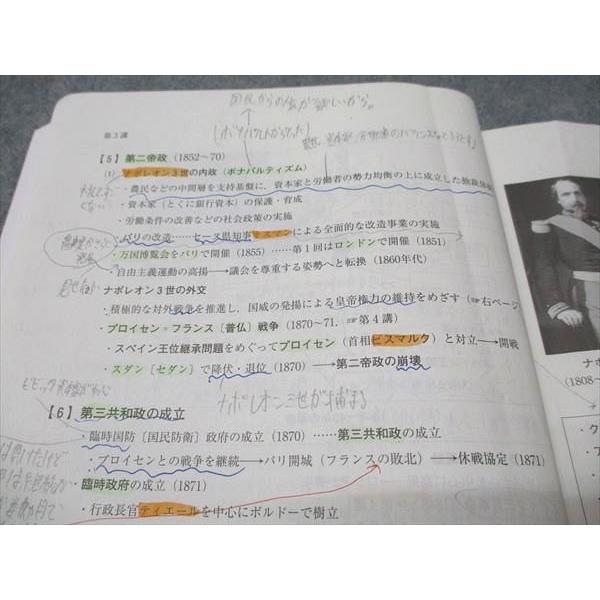 国民からの人気が欲しいから。
第3講
【5】第二帝政（1852〜70）
(1) ナポレオン3世の内政（ボナパルティズム）
・農民などの中間層を支持基盤に，資本家と労働者の勢力均衡の上に成立した独裁体制
・資本家（とくに銀行資本）の保護・育成
・労働条件の改善などの社会政策の実施
・パリの改造……セーヌ県知事オスマンによる全面的な改造事業の実施
・万国博覧会をパリで開催（1855）……第1回はロンドンで開催（1851）
・自由主義運動の高揚→議会を尊重する姿勢へと転換（1860年代）
ナポレオン3世の外交
・積極的な対外戦争を推進し，国威の発揚による皇帝権力の維持をめざす（☞右ページ
・プロイセン＝フランス［普仏］戦争（1870〜71. ☞第4講）
・スペイン王位継承問題をめぐってプロイセン（首相ビスマルク）と対立→開戦
・スダン［セダン］で降伏・退位（1870）→第二帝政の崩壊
ナポレオン三世が捕まる
【6】第三共和政の成立
・臨時国防［国民防衛］政府の成立（1870）……第三共和政の成立
・プロイセンとの戦争を継続→パリ開城（フランスの敗北）→休戦協定（1871）
臨時政府の成立（1871）
・行政長官ティエールを中心にボルドーで樹立
ナポ
（1808〜
・ク
・ア